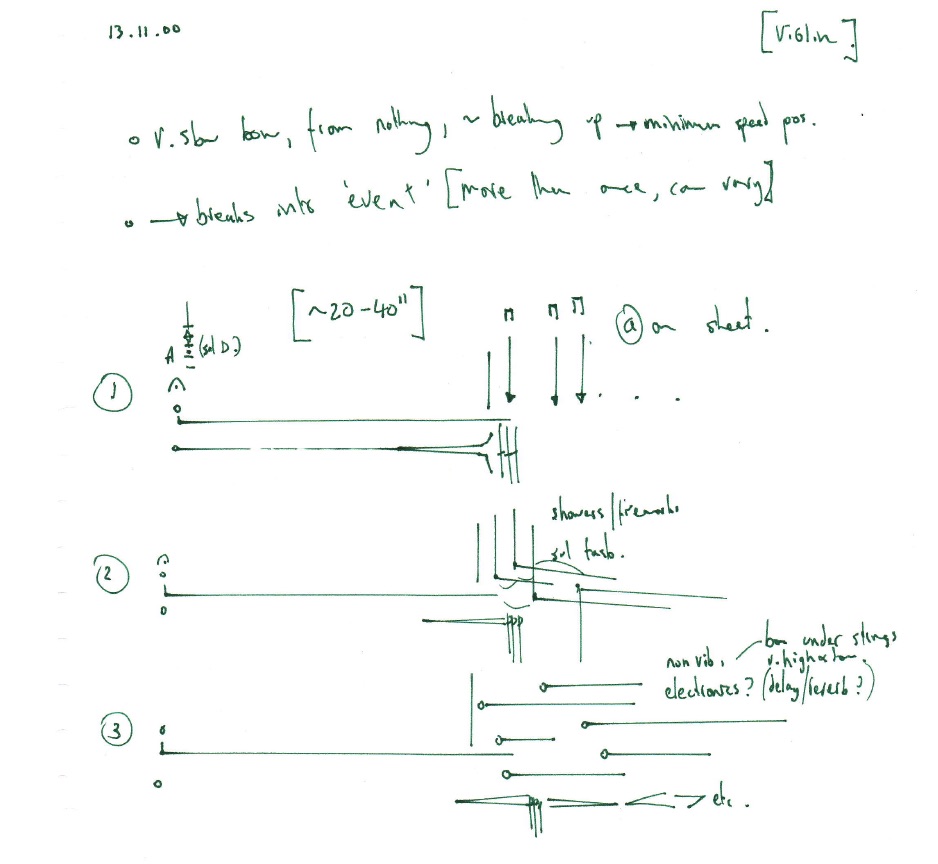 13.11.00
[Violin.]
v. slow bow, from nothing, ~ breaking up → minimum speed pos.
→ breaks into 'event' [more than once, can vary]
[~20-40"]
A (sul D.)
ⓐ on sheet.
①
showers/fireworks
sul tasto.
②
bow under strings
non vib, v. high
electronics? (delay/reverb?)
③
ppp
etc.